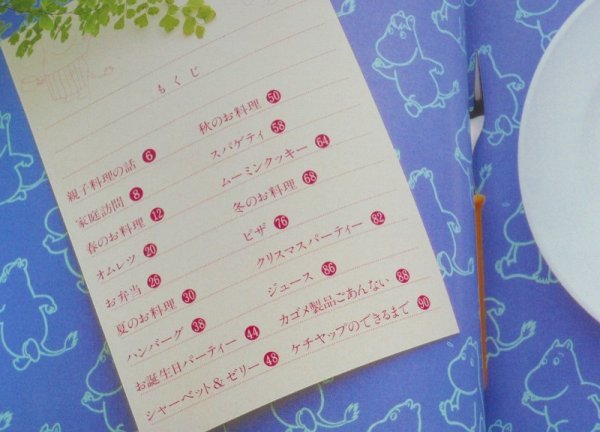 もくじ
親子料理の話 6
家庭訪問 8
春のお料理 12
オムレツ 20
お弁当 26
夏のお料理 30
ハンバーグ 38
お誕生日パーティー 44
シャーベット&ゼリー 48
秋のお料理 50
スパゲティ 58
ムーミンクッキー 64
冬のお料理 68
ピザ 76
クリスマスパーティー 82
ジュース 86
カゴメ製品ごあんない 88
ケチャップのできるまで 90